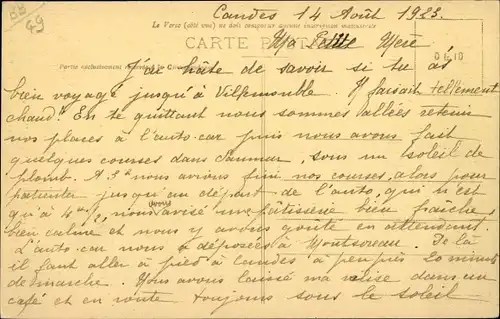 BB
49
Candes 14 Août 1933.
Le Verso (côté vue) ne doit comporter aucune inscription manuscrite
CARTE POSTALE
Ma Petite Mère
0610
Partie exclusivement réservée à la
J'ai hâte de savoir si tu as
bien voyagé jusqu'à Villemomble. Il faisait tellement
chaud! En te quittant nous sommes allées retenir
nos places à l'auto-car puis nous avons fait
quelques courses dans Saumur, sous un soleil de
plomb. A 3h nous avions fini nos courses, alors pour
patienter jusqu'au départ de l'auto, qui n'est
qu'à 4h, nous avons avisé une pâtisserie bien fraîche
bien calme et nous y avons goûté en attendant.
L'auto-car nous a déposées à Montsoreau. De là
il faut aller à pied à Candes à peu près 20 minutes
de marche. Nous avons laissé ma valise dans un
café et en route toujours sous le soleil